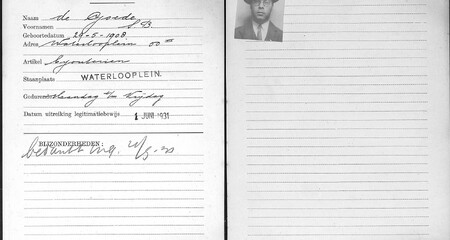 Naam de Goede
Voornamen S B.
Geboortedatum 29-5-1908.
Adres Waterlooplein 00
Artikel
Staanplaats WATERLOOPLEIN.
Gedurende Maandag t/m Vrijdag
Datum uitreiking legitimatiebewijs 1 JUNI 1931
BIJZONDERHEDEN:
bedankt